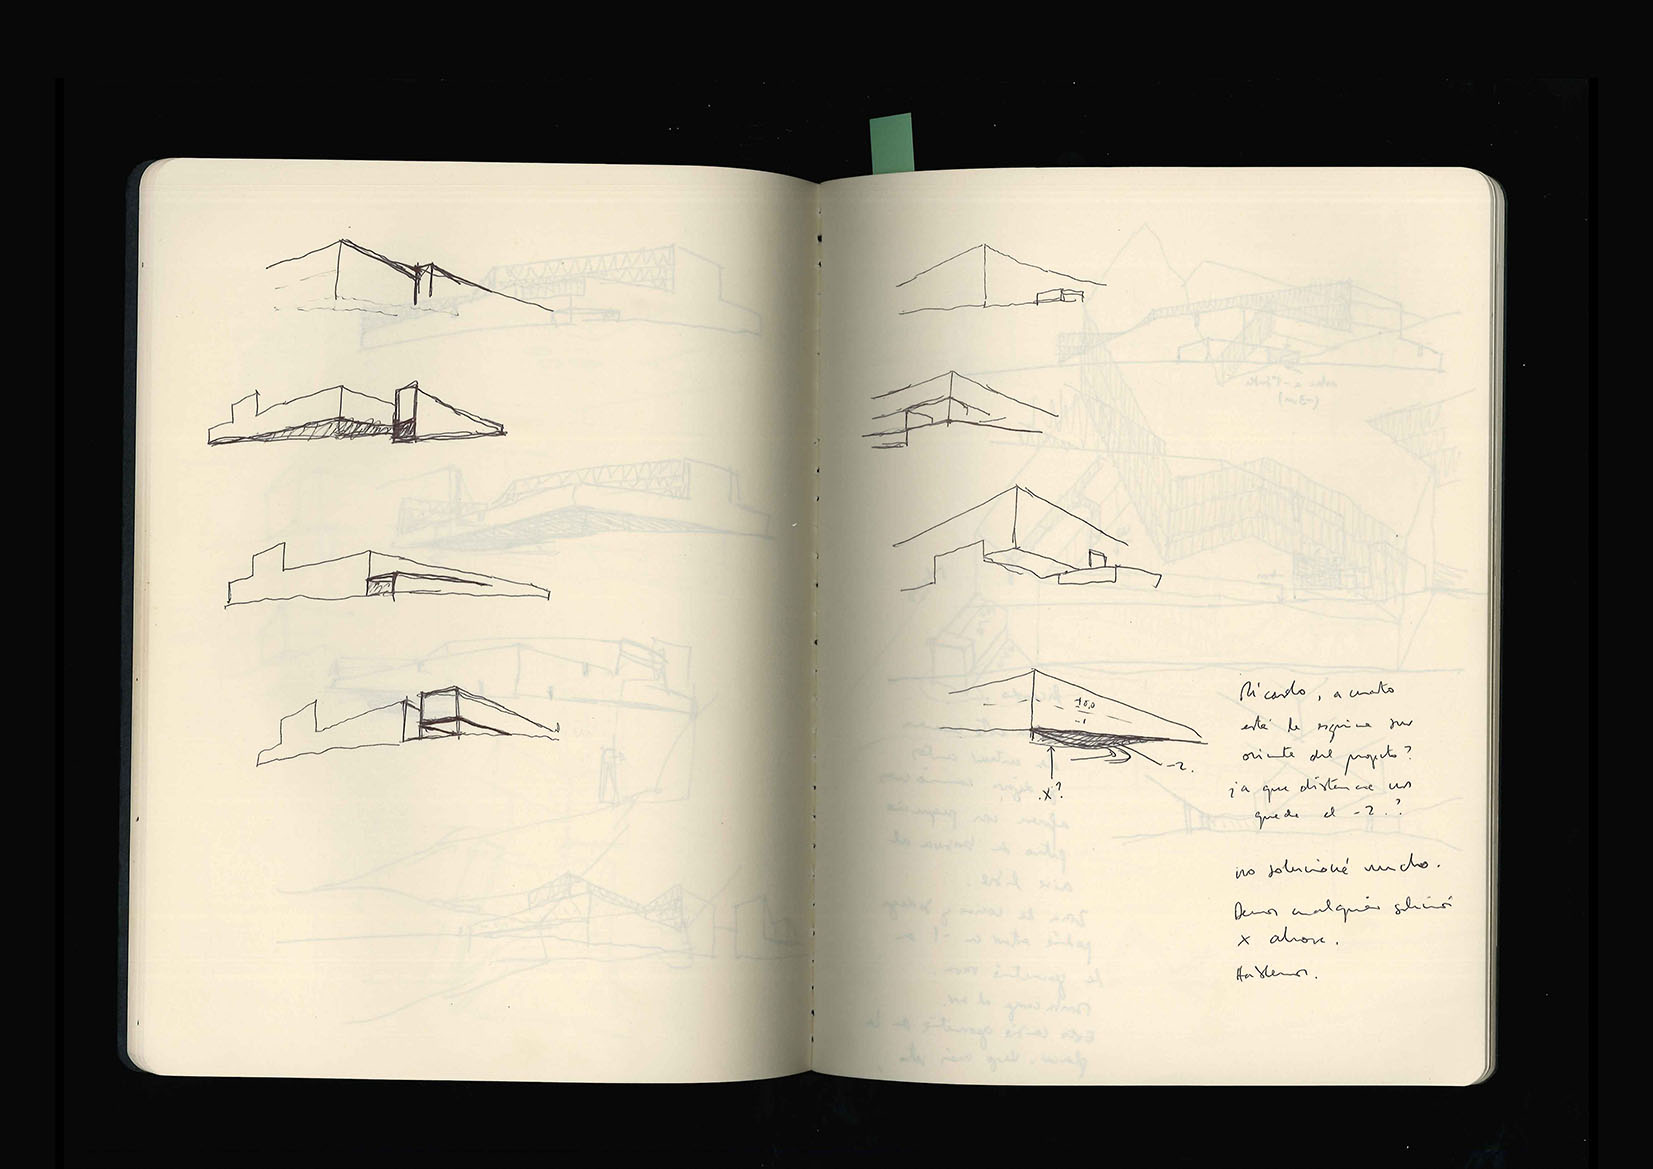 ±0,0
-1
-2.
x?
Ricardo, a cuanto
está la esquina sur
oriente del proyecto?
¿a que distancia nos
queda el -2??
no solucioné mucho.
Demos cualquier solución
x ahora.
Hablemos.